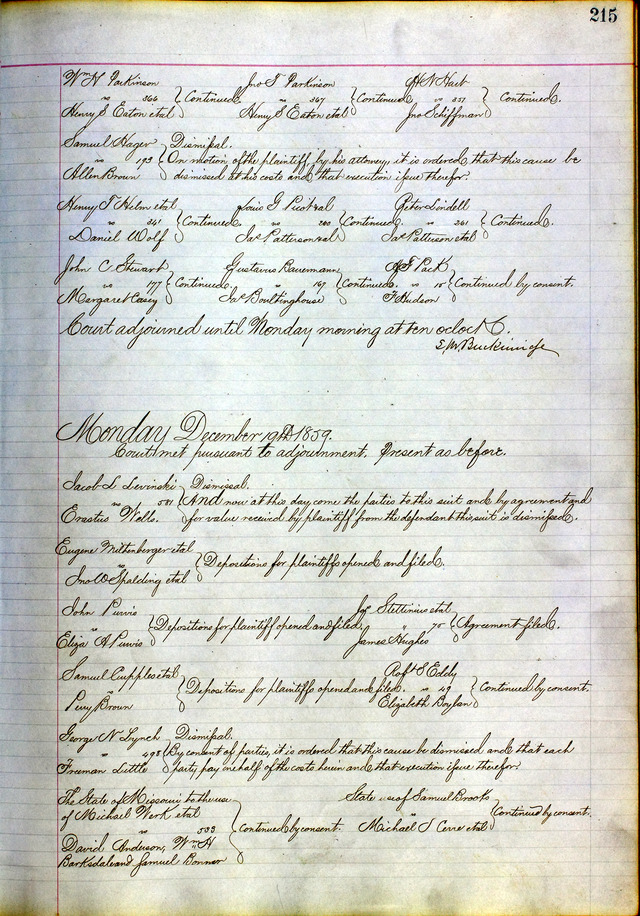 215
Wm H Parkinson
vs 366 } Continued.
Henry S Eaton etal
Jno T Parkinson
vs 367 } Continued.
Henry S Eaton etal
H N Hart
vs 337 } Continued.
Jno Schiffman
Samuel Hager } Dismissal.
vs 193 } On motion of the plaintiff, by his attorney, it is ordered that this cause be
Allen Brown } dismissed at his costs and that execution issue therefor.
Henry T Helm etal
vs 241 } Continued
Daniel Wolf
Louis G Picot
vs 260 } Continued.
Jas Patterson
Peter Lindell
vs 261 } Continued.
Jas Patterson etal
John C Stewart
vs 177 } Continued.
Margaret Casey
Gustavus Bauermann
vs 167 } Continued.
Jas Boultinghouse
Pack
vs 15 } Continued by consent.
F Hudson
Court adjourned until Monday morning at ten oclock.
Monday December 19th 1859.
Court met pursuant to adjournment. Present as before.
Jacob L Levinski } Dismissal.
vs 501 } And now at this day come the parties to this suit and by agreement and
Erastus Wells. } for value received by plaintiff from the defendant this suit is dismissed.
Eugene Miltenberger etal
vs } Depositions for plaintiffs opened and filed.
Jno W Spalding etal
John Purvis
vs } Depositions for plaintiff opened and filed.
Eliza A Purvis
Stettinius etal
vs 75 } Agreement filed.
James Hughes
Samuel Cupples etal
vs } Depositions for plaintiffs opened and filed.
Perry Brown
Robt S Eddy
vs 49 } Continued by consent.
Elizabeth Boylan
George N Lynch } Dismissal.
vs 495 } By consent of parties, it is ordered that this cause be dismissed and that each
Freeman Little } party pay one half of the costs herein and that execution issue therefor.
The State of Missouri to the use
of Michael Werk etal
vs 533 } Continued by consent.
David Anderson, Wm H
Barksdale and Samuel Bonner
State use of Samuel Brooks
vs } Continued by consent.
Michael S Cerre etal